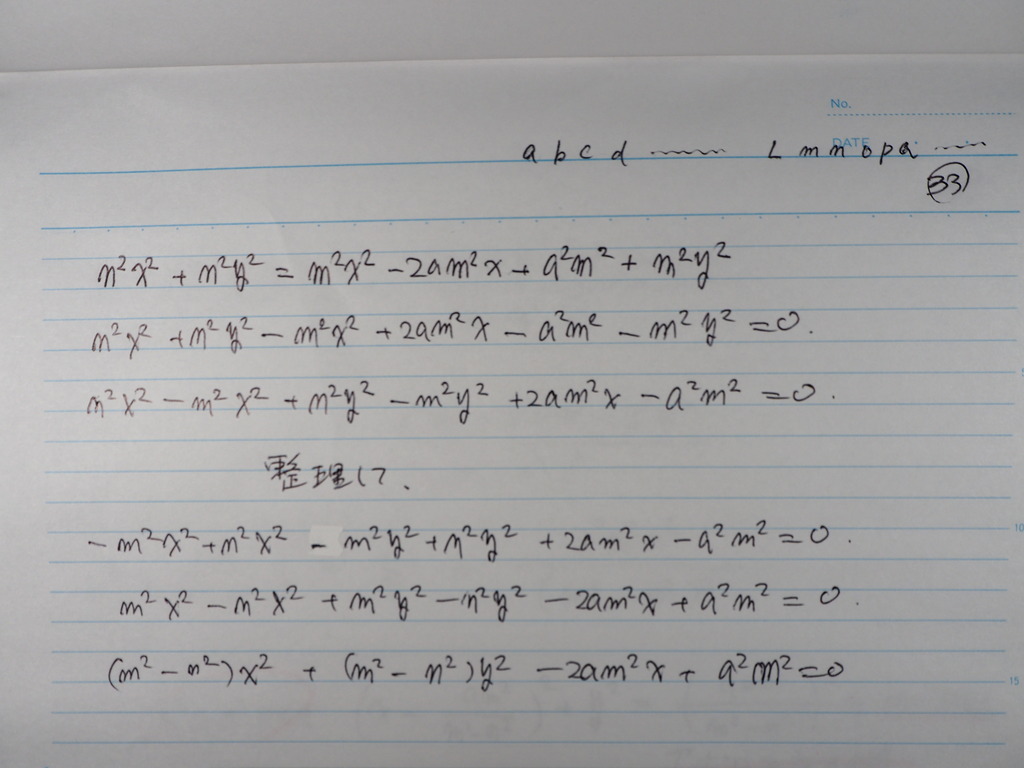 No.
DATE
a b c d ﹏﹏ L m n o p q ﹏﹏
33
n²x² + n²y² = m²x² - 2am²x + a²m² + m²y²
n²x² + n²y² - m²x² + 2am²x - a²m² - m²y² = 0.
n²x² - m²x² + n²y² - m²y² + 2am²x - a²m² = 0.
整理して、
- m²x² + n²x² - m²y² + n²y² + 2am²x - a²m² = 0.
10
m²x² - n²x² + m²y² - n²y² - 2am²x + a²m² = 0.
(m² - n²)x² + (m² - n²)y² - 2am²x + a²m² = 0
15